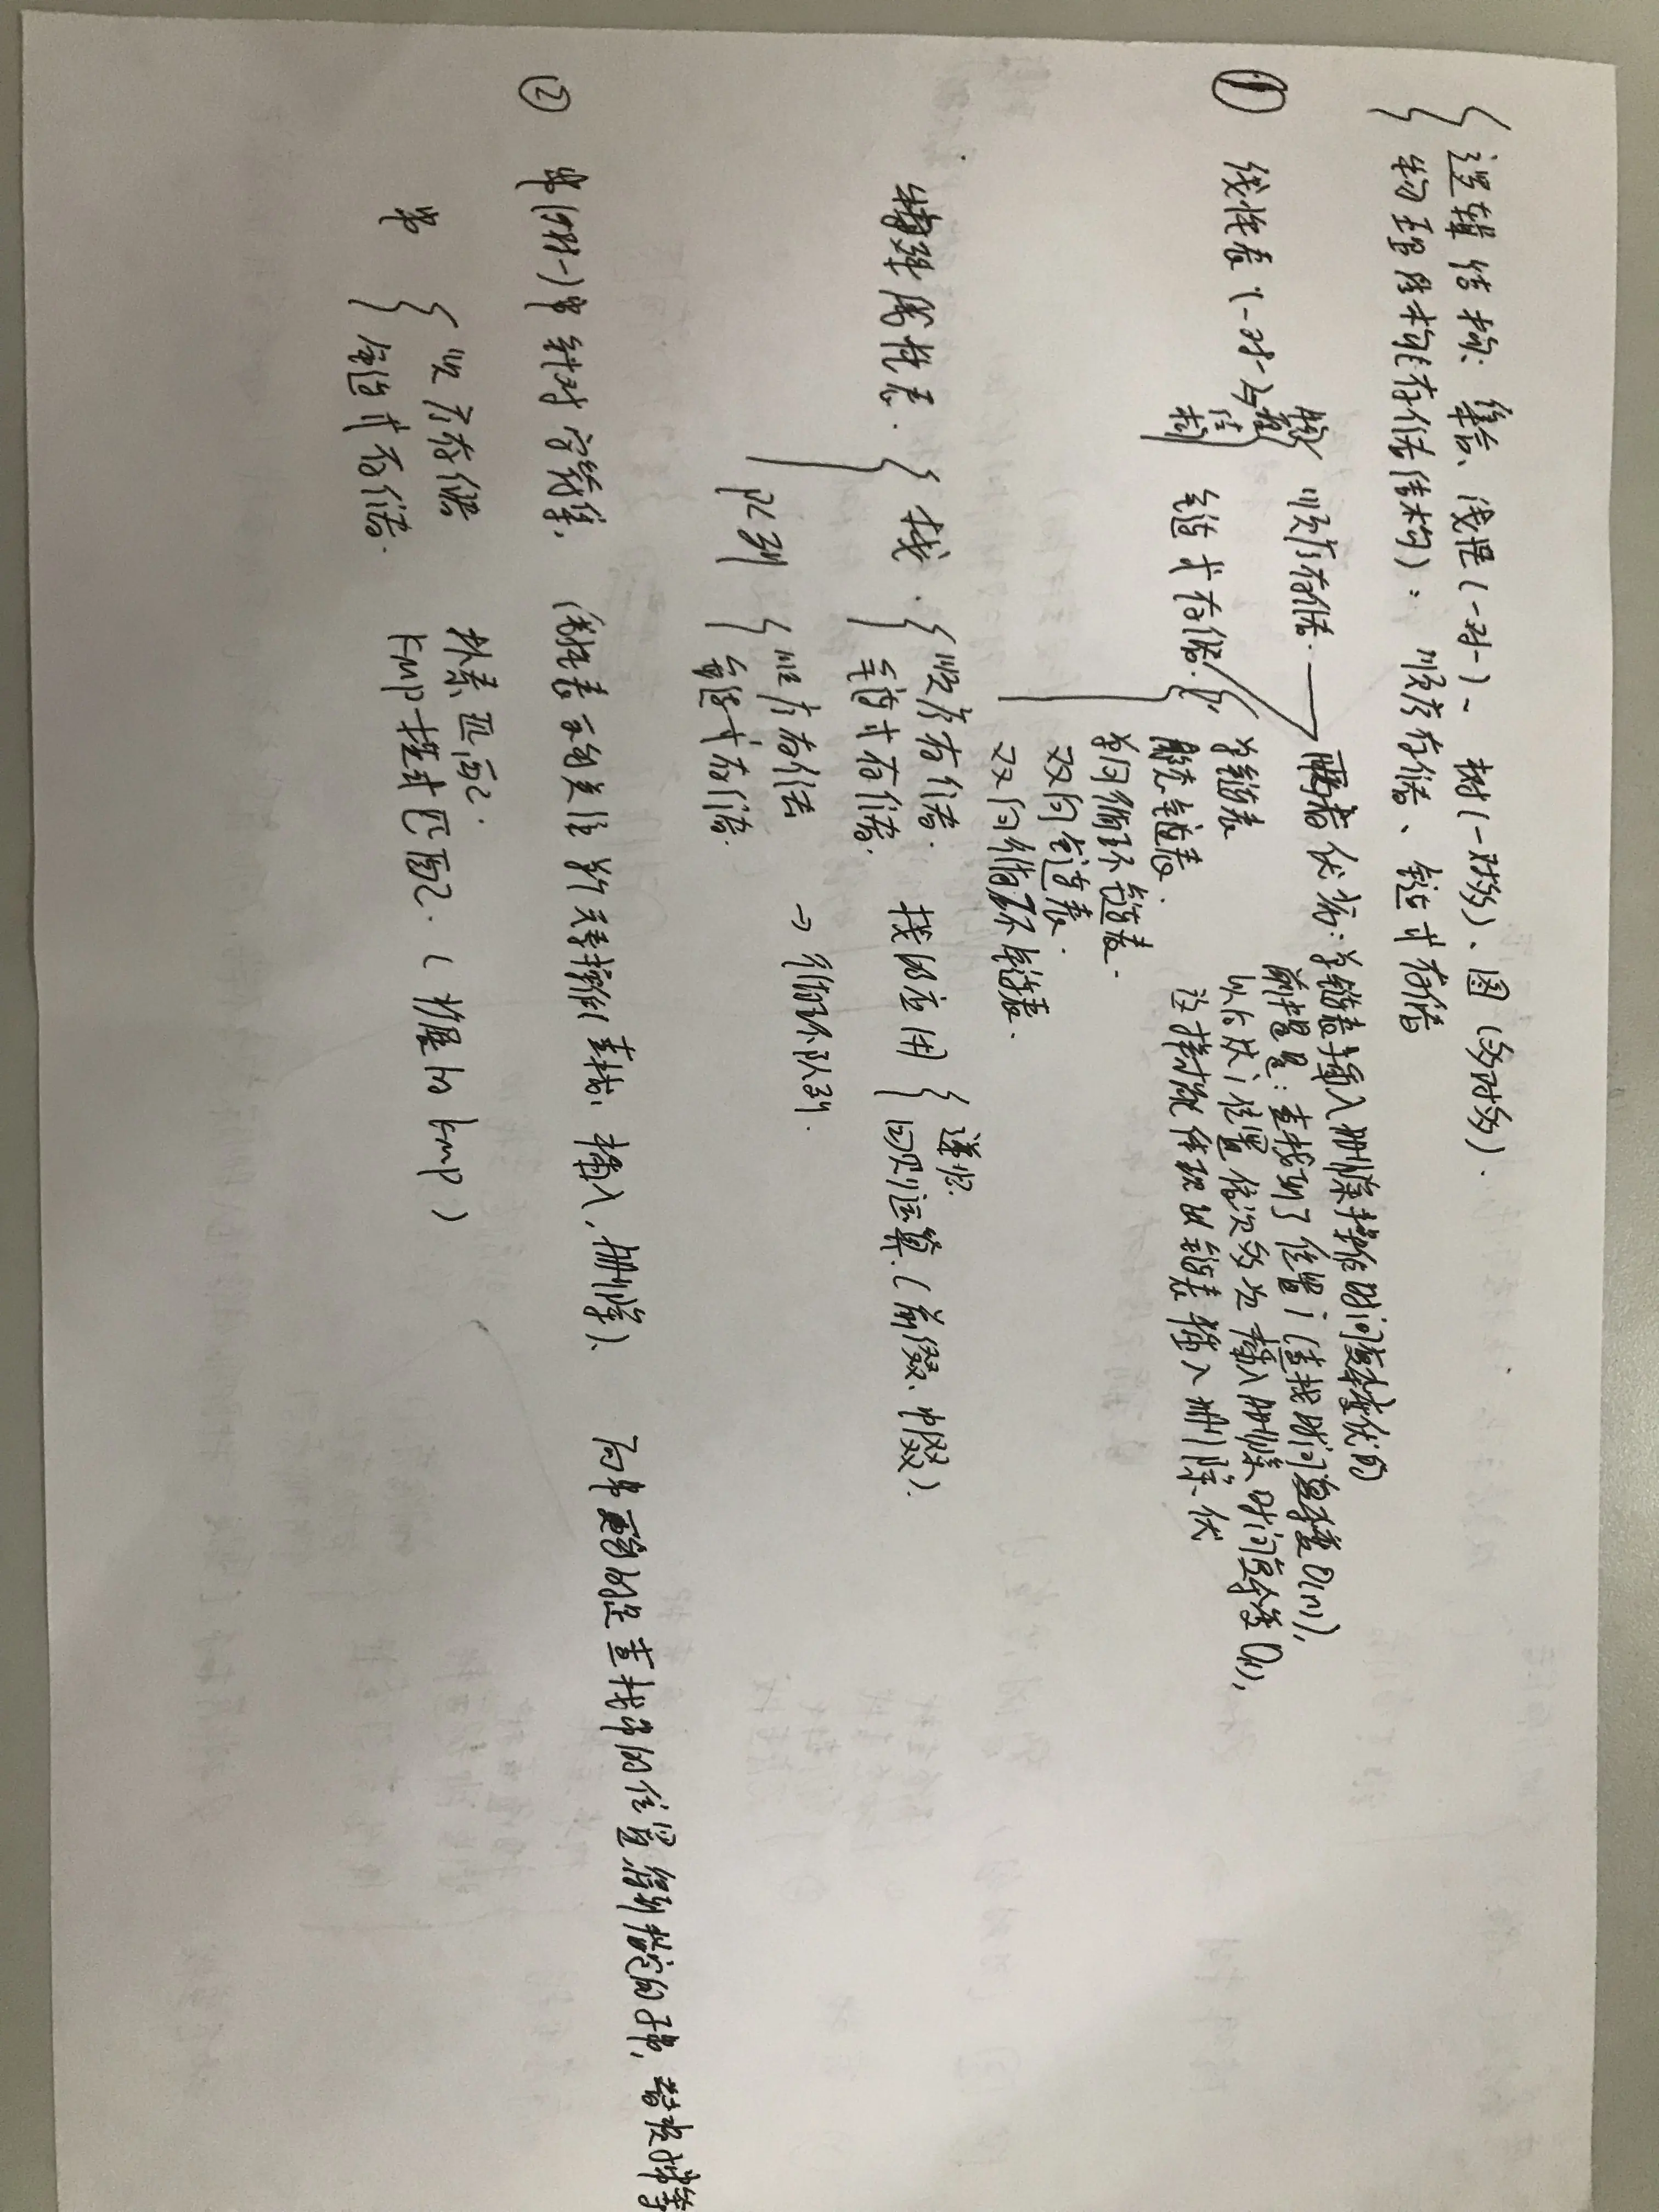 逻辑结构：集合、线性（一对一）、树（一对多）、图（多对多）.
物理结构（存储结构）：顺序存储、链式存储
① 线性表（一对一） 顺序存储.
链式存储.
单链表
静态链表.
单向循环链表.
双向链表.
双向循环链表.
两者优劣：单链表插入删除操作时间复杂度优的
前提是：查找到了位置i（查找时间复杂度O(n)），
以后从i位置依次多次插入删除时间复杂度O(1)，
这样才能体现出链表插入删除优
特殊线性表. 栈. 顺序存储. 栈的应用 递归.
链式存储. 四则运算（前缀、中缀）.
队列 顺序存储 → 循环队列.
链式存储.
② 串（一对一）串针对字符集， （线性表更多关注单个元素操作 查找、插入、删除）. 而串更多的是查找串的位置、得到指定的子串，替换子串等
串 顺序存储 朴素匹配.
链式存储. kmp模式匹配.（拓展的kmp）